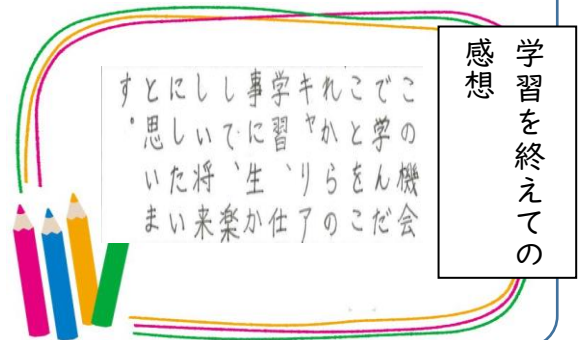 学習を終えての
感想
この機会
で学んだ
ことをこ
れからの
キャリア
学習、仕
事に生か
して、楽
しい将来
にしたい
と思いま
す。